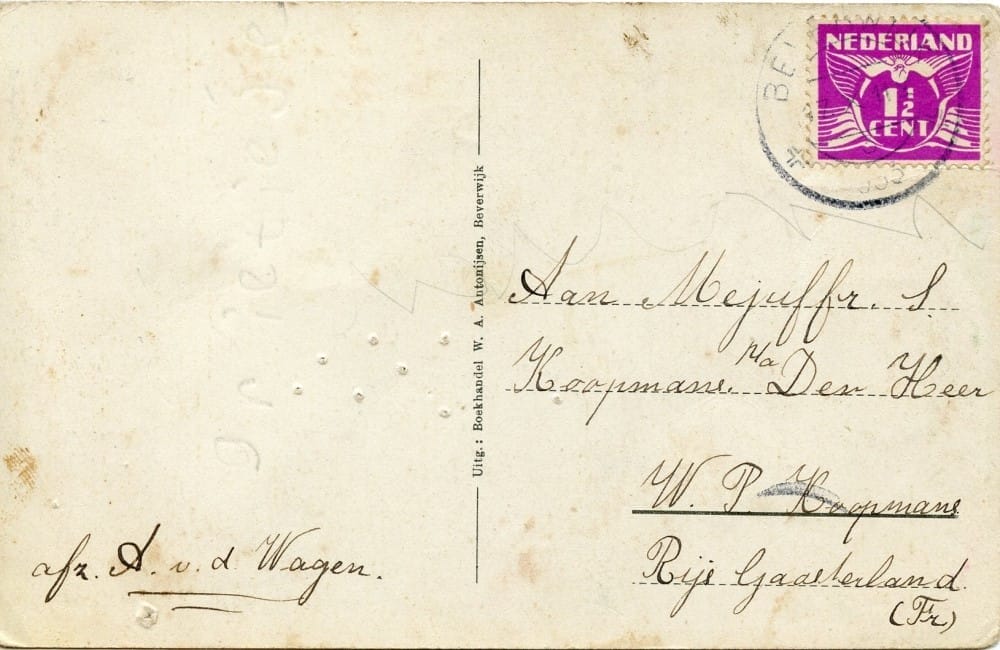 NEDERLAND
1½
CENT
Uitg.: Boekhandel W. A. Antonijsen, Beverwijk
Aan Mejuffr. S.
Koopmans. p/a Den Heer
W. P. Koopmans
Rijs Gaasterland.
(Fr.)
afz. A. v. d Wagen.